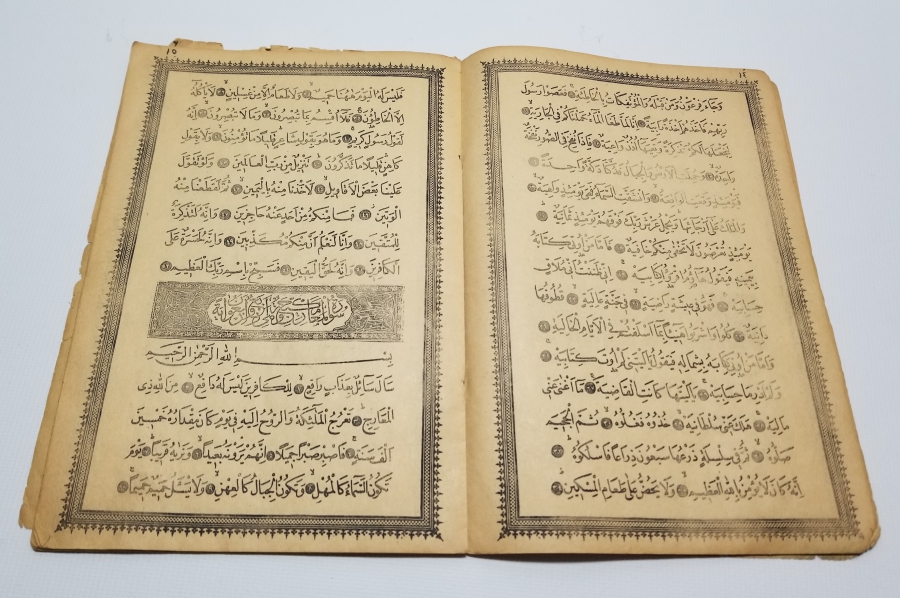 ١٤
وَجَاءَ فِرْعَوْنُ وَمَنْ قَبْلَهُ وَالْمُؤْتَفِكَاتُ بِالْخَاطِئَةِ فَعَصَوْا رَسُولَ
رَبِّهِمْ فَأَخَذَهُمْ أَخْذَةً رَابِيَةً إِنَّا لَمَّا طَغَا الْمَاءُ حَمَلْنَاكُمْ فِي الْجَارِيَةِ
لِنَجْعَلَهَا لَكُمْ تَذْكِرَةً وَتَعِيَهَا أُذُنٌ وَاعِيَةٌ فَإِذَا نُفِخَ فِي الصُّورِ نَفْخَةٌ
وَاحِدَةٌ وَحُمِلَتِ الْأَرْضُ وَالْجِبَالُ فَدُكَّتَا دَكَّةً وَاحِدَةً
فَيَوْمَئِذٍ وَقَعَتِ الْوَاقِعَةُ وَانْشَقَّتِ السَّمَاءُ فَهِيَ يَوْمَئِذٍ وَاهِيَةٌ
وَالْمَلَكُ عَلَى أَرْجَائِهَا وَيَحْمِلُ عَرْشَ رَبِّكَ فَوْقَهُمْ يَوْمَئِذٍ ثَمَانِيَةٌ
يَوْمَئِذٍ تُعْرَضُونَ لَا تَخْفَى مِنْكُمْ خَافِيَةٌ فَأَمَّا مَنْ أُوتِيَ كِتَابَهُ
بِيَمِينِهِ فَيَقُولُ هَاؤُمُ اقْرَؤُا كِتَابِيَهْ إِنِّي ظَنَنْتُ أَنِّي مُلَاقٍ
حِسَابِيَهْ فَهُوَ فِي عِيشَةٍ رَاضِيَةٍ فِي جَنَّةٍ عَالِيَةٍ قُطُوفُهَا
دَانِيَةٌ كُلُوا وَاشْرَبُوا هَنِيئًا بِمَا أَسْلَفْتُمْ فِي الْأَيَّامِ الْخَالِيَةِ
وَأَمَّا مَنْ أُوتِيَ كِتَابَهُ بِشِمَالِهِ فَيَقُولُ يَا لَيْتَنِي لَمْ أُوتَ كِتَابِيَهْ
وَلَمْ أَدْرِ مَا حِسَابِيَهْ يَا لَيْتَهَا كَانَتِ الْقَاضِيَةَ مَا أَغْنَى عَنِّي
مَالِيَهْ هَلَكَ عَنِّي سُلْطَانِيَهْ خُذُوهُ فَغُلُّوهُ ثُمَّ الْجَحِيمَ
صَلُّوهُ ثُمَّ فِي سِلْسِلَةٍ ذَرْعُهَا سَبْعُونَ ذِرَاعًا فَاسْلُكُوهُ
إِنَّهُ كَانَ لَا يُؤْمِنُ بِاللَّهِ الْعَظِيمِ وَلَا يَحُضُّ عَلَى طَعَامِ الْمِسْكِينِ
١٥
فَلَيْسَ لَهُ الْيَوْمَ هَهُنَا حَمِيمٌ وَلَا طَعَامٌ إِلَّا مِنْ غِسْلِينٍ لَا يَأْكُلُهُ
إِلَّا الْخَاطِؤُنَ فَلَا أُقْسِمُ بِمَا تُبْصِرُونَ وَمَا لَا تُبْصِرُونَ إِنَّهُ
لَقَوْلُ رَسُولٍ كَرِيمٍ وَمَا هُوَ بِقَوْلِ شَاعِرٍ قَلِيلًا مَا تُؤْمِنُونَ وَلَا بِقَوْلِ
كَاهِنٍ قَلِيلًا مَا تَذَكَّرُونَ تَنْزِيلٌ مِنْ رَبِّ الْعَالَمِينَ وَلَوْ تَقَوَّلَ
عَلَيْنَا بَعْضَ الْأَقَاوِيلِ لَأَخَذْنَا مِنْهُ بِالْيَمِينِ ثُمَّ لَقَطَعْنَا مِنْهُ
الْوَتِينَ فَمَا مِنْكُمْ مِنْ أَحَدٍ عَنْهُ حَاجِزِينَ وَإِنَّهُ لَتَذْكِرَةٌ
لِلْمُتَّقِينَ وَإِنَّا لَنَعْلَمُ أَنَّ مِنْكُمْ مُكَذِّبِينَ وَإِنَّهُ لَحَسْرَةٌ عَلَى
الْكَافِرِينَ وَإِنَّهُ لَحَقُّ الْيَقِينِ فَسَبِّحْ بِاسْمِ رَبِّكَ الْعَظِيمِ
سورة المعارج
بِسْمِ اللَّهِ الرَّحْمَنِ الرَّحِيمِ
سَأَلَ سَائِلٌ بِعَذَابٍ وَاقِعٍ لِلْكَافِرِينَ لَيْسَ لَهُ دَافِعٌ مِنَ اللَّهِ ذِي
الْمَعَارِجِ تَعْرُجُ الْمَلَئِكَةُ وَالرُّوحُ إِلَيْهِ فِي يَوْمٍ كَانَ مِقْدَارُهُ خَمْسِينَ
أَلْفَ سَنَةٍ فَاصْبِرْ صَبْرًا جَمِيلًا إِنَّهُمْ يَرَوْنَهُ بَعِيدًا وَنَرَيهُ قَرِيبًا يَوْمَ
تَكُونُ السَّمَاءُ كَالْمُهْلِ وَتَكُونُ الْجِبَالُ كَالْعِهْنِ وَلَا يَسْئَلُ حَمِيمٌ حَمِيمًا